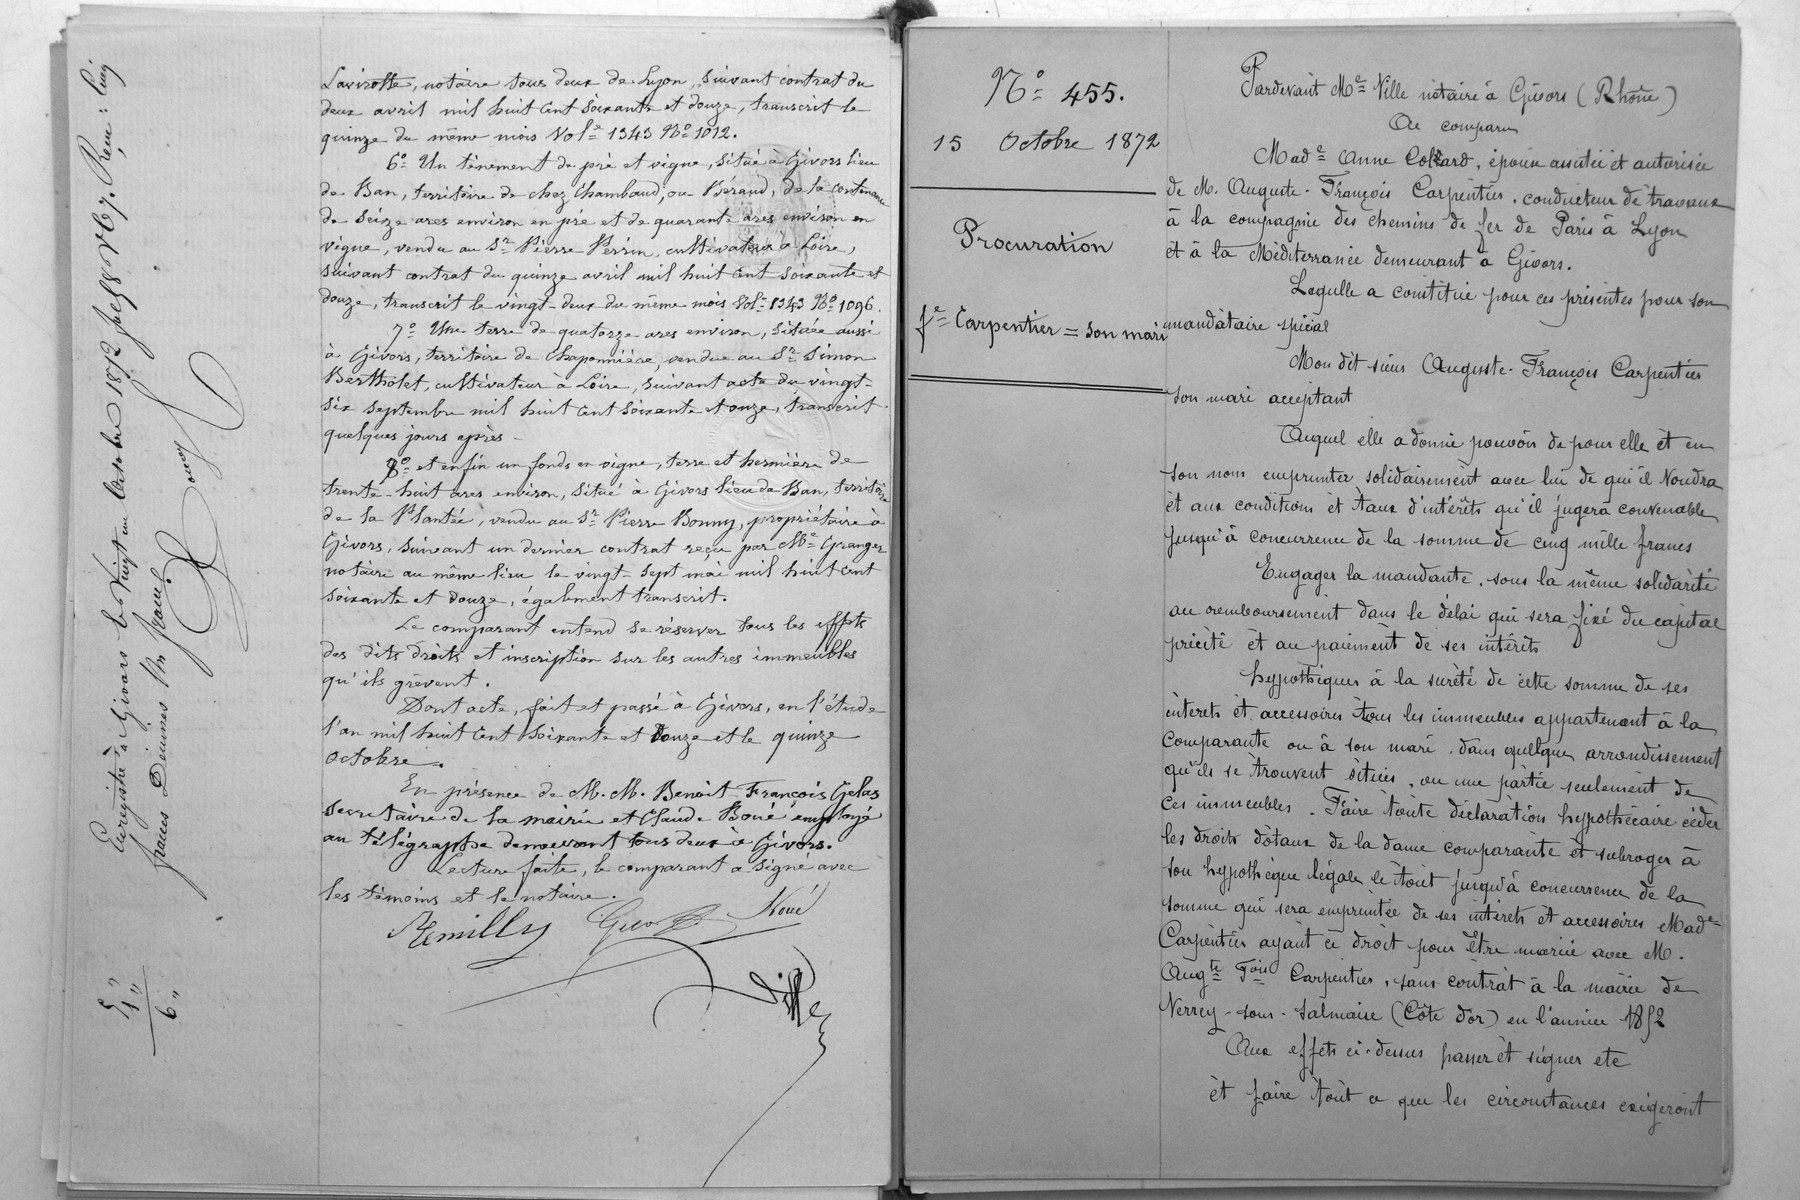 Lavirotte, notaire tous deux de Lyon, suivant contrat du
deux avril mil huit cent soixante et douze, transcrit le
quinze du même mois Vol.e 1343 No 1012.
6o Un tènement de pré et vigne, situé à Givors lieu
de Ban, territoire de chez Chambaud, ou Béraud, de la contenance
de seize ares environ en pré et de quarante ares environ en
vigne, vendu au Sr Pierre Perrin, cultivateur à Loire,
suivant contrat du quinze avril mil huit cent soixante et
douze, transcrit le vingt-deux du même mois Vol.e 1343 No 1096.
7o Une terre de quatorze ares environ, située aussi
à Givors, territoire de Chaponnière, vendue au Sr Simon
Bertholet, cultivateur à Loire, suivant acte du vingt-
six septembre mil huit cent soixante et onze, transcrit
quelques jours après -
8o et enfin un fonds en vigne, terre et hermière de
trente-huit ares environ, situé à Givors lieu de Ban, territoire
de la Plantée, vendu au Sr Pierre Bonny, propriétaire à
Givors, suivant un dernier contrat reçu par Me Granger
notaire au même lieu le vingt-sept mai mil huit cent
soixante et douze, également transcrit.
Le comparant entend se réserver tous les effets
des dits droits et inscription sur les autres immeubles
qu'ils grèvent.
Dont acte, fait et passé à Givors, en l'étude
l'an mil huit cent soixante et douze et le quinze
octobre.
En présence de M. M. Benoit François Gelas
secrétaire de la mairie et Claude Boué employé
au télégraphe demeurant tous deux à Givors.
Lecture faite, le comparant a signé avec
les témoins et le notaire.
Remilly Boué
Ville
Enregistré à Givors le Vingt un Octobre 1872 Reçu: Cinq
francs Décimes un franc
5 "
1 "
6 "
No 455.
15 Octobre 1872
Procuration
fe Carpentier = son mari
Pardevant Me Ville notaire à Givors (Rhône)
A comparu
Made Anne Collard, épouse assistée et autorisée
de M. Auguste-François Carpentier, conducteur de travaux
à la compagnie des chemins de fer de Paris à Lyon
et à la Méditerranée demeurant à Givors.
Laquelle a constitué pour ces présentes pour son
mandataire spécial
Mon dit sieur Auguste-François Carpentier
son mari acceptant
Auquel elle a donné pouvoir de pour elle et en
son nom emprunter solidairement avec lui de qui il voudra
et aux conditions et taux d'intérêts qu'il jugera convenable
jusqu'à concurrence de la somme de cinq mille francs
Engager la mandante, sous la même solidarité
au remboursement dans le délai qui sera fixé du capital
prêté et au paiement de ses intérêts
hypothéquer à la sûreté de cette somme de ses
intérêts et accessoires tous les immeubles appartenant à la
comparante ou à son mari, dans quelque arrondissement
qu'ils se trouvent situés, ou une partie seulement de
ces immeubles. Faire toute déclaration hypothécaire céder
les droits dotaux de la dame comparante et subroger à
son hypothèque légale le tout jusqu'à concurrence de la
somme qui sera empruntée de ses intérêts et accessoires Made
Carpentier ayant ce droit pour être mariée avec M.
Augte Fois Carpentier, sans contrat à la mairie de
Verrey-sous-Salmaise (Côte d'or) en l'année 1852
Aux effets ci-dessus passer et signer etc
et faire tout ce que les circonstances exigeront